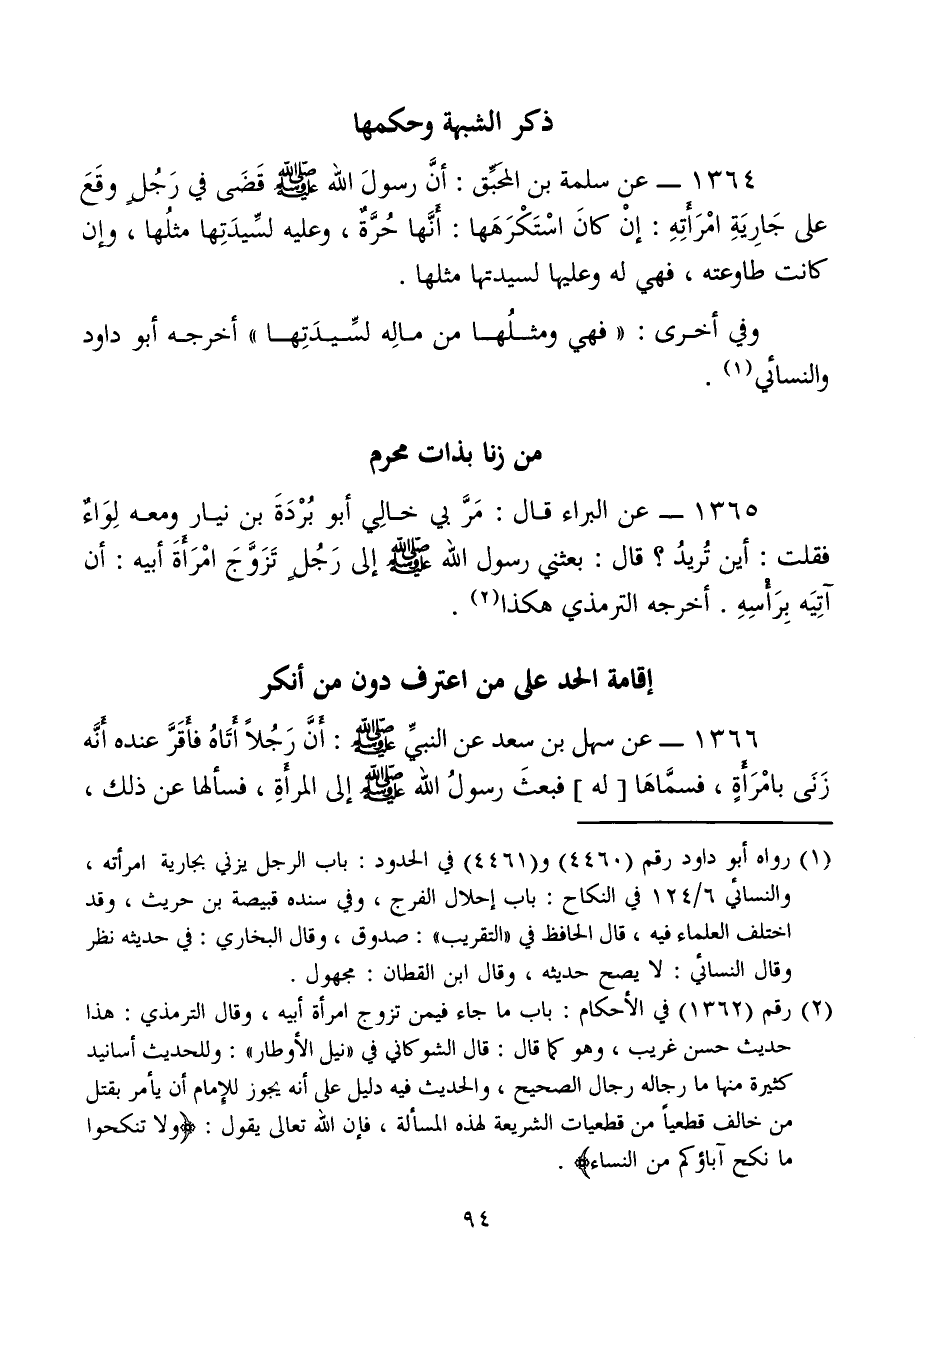 ذكر الشبهة وحكمها
١٣٦٤ — عن سلمة بن المحَبِّق : أنَّ رسولَ الله ﷺ قَضَى في رَجُلٍ وقَعَ
على جَارِيَةِ امْرَأَتِهِ : إنْ كانَ اسْتَكْرَهَها : أَنَّها حُرَّةٌ ، وعليه لسِّيدَتِها مثلُها ، وإن
كانت طاوعته ، فهي له وعليها لسيدتها مثلها .
وفي أخـرى : « فهي ومثــلُهــا من مـالِه لسِّـيـدَتِهــا » أخرجـه أبو داود
والنسائي(١) .
من زنا بذات محرم
١٣٦٥ — عن البراء قـال : مَرَّ بي خـالِي أبو بُرْدَةَ بن نيـار ومعـه لِوَاءٌ
فقلت : أين تُريدُ ؟ قال : بعثني رسول الله ﷺ إلى رَجُلٍ تَزَوَّجَ امْرَأَةَ أبيه : أن
آتِيَه بِرَأْسِهِ . أخرجه الترمذي هكذا(٢) .
إقامة الحد على من اعترف دون من أنكر
١٣٦٦ — عن سهل بن سعد عن النبيِّ ﷺ : أَنَّ رَجُلاً أَتَاهُ فأَقَرَّ عنده أَنَّه
زَنَى بامْرَأَةٍ ، فسمَّاهَا [ له ] فبعثَ رسولُ الله ﷺ إلى المرأَةِ ، فسألها عن ذلك ،
(١) رواه أبو داود رقم (٤٤٦٠) و(٤٤٦١) في الحدود : باب الرجل يزني بجارية امرأته ،
والنسائي ١٢٤/٦ في النكاح : باب إحلال الفرج ، وفي سنده قبيصة بن حريث ، وقد
اختلف العلماء فيه ، قال الحافظ في «التقريب» : صدوق ، وقال البخاري : في حديثه نظر
وقال النسائي : لا يصح حديثه ، وقال ابن القطان : مجهول .
(٢) رقم (١٣٦٢) في الأحكام : باب ما جاء فيمن تزوج امرأة أبيه ، وقال الترمذي : هذا
حديث حسن غريب ، وهو كما قال : قال الشوكاني في «نيل الأوطار» : وللحديث أسانيد
كثيرة منها ما رجاله رجال الصحيح ، والحديث فيه دليل على أنه يجوز للإمام أن يأمر بقتل
من خالف قطعياً من قطعيات الشريعة لهذه المسألة ، فإن الله تعالى يقول : ﴿ولا تنكحوا
ما نكح آباؤكم من النساء﴾ .
٩٤